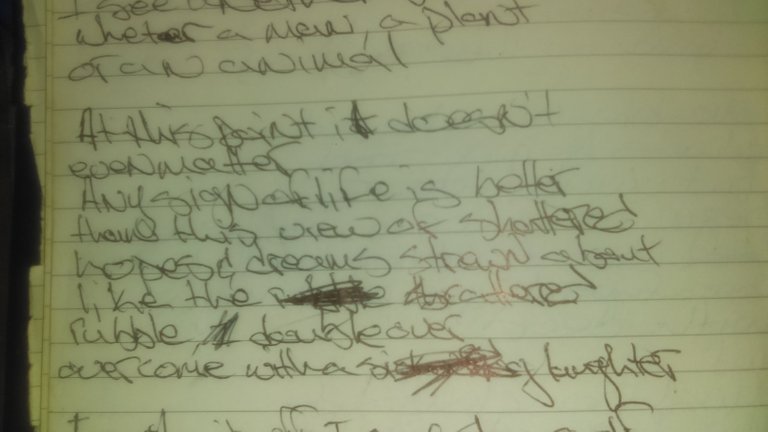 I see
whether a man, a plant
or an animal
At this point it doesn't
even matter
Any sign of life is better
than this view of shattered
hopes & dreams strewn about
like the scattered
rubble, I double over
overcome with a laughter